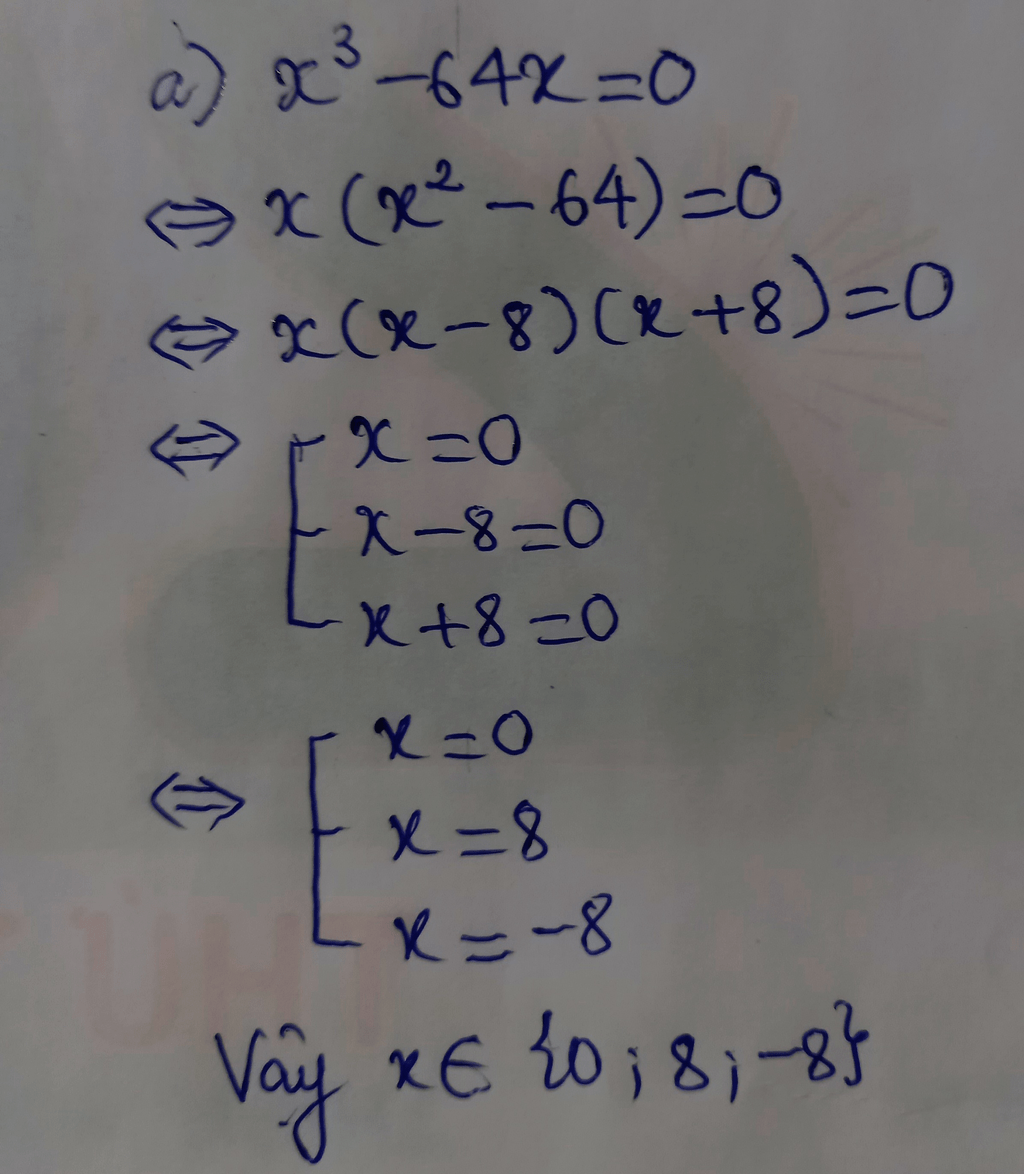 a) x³ - 64x = 0
⇔ x(x² - 64) = 0
⇔ x(x - 8)(x + 8) = 0
⇔ [ x = 0
x - 8 = 0
x + 8 = 0
⇔ [ x = 0
x = 8
x = -8
Vậy x ∈ {0; 8; -8}